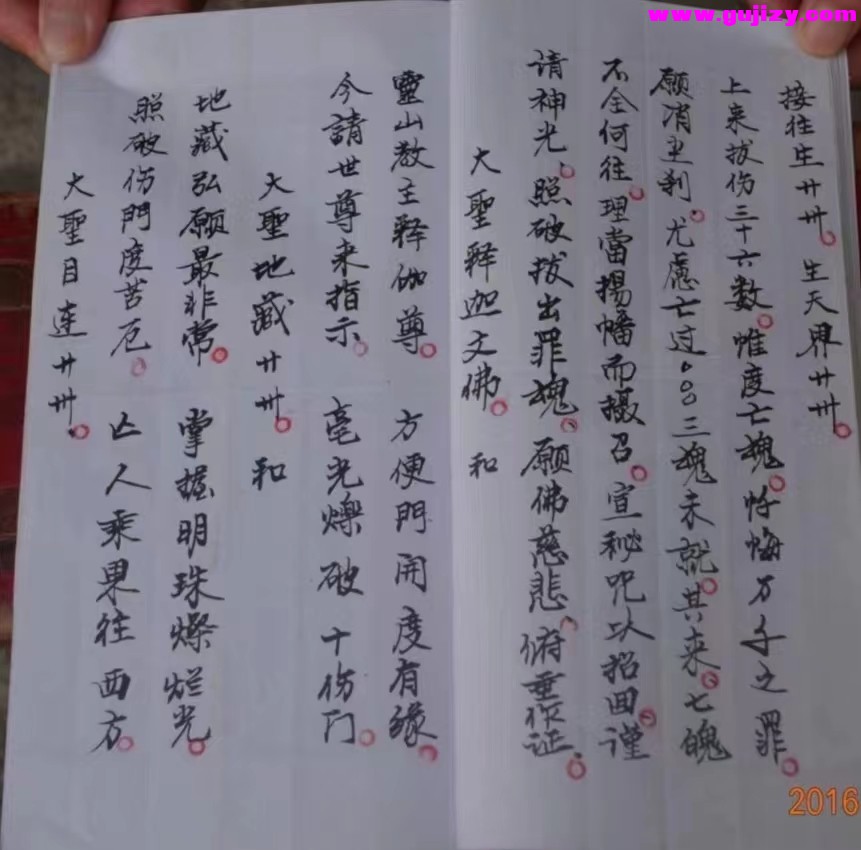 www.gujizy.com
接往生卄卅。生天界卄卅。
上来拔伤三十六数。惟度亡魂。忏悔万千之罪。
願消尘刹。尤慮亡过。○○三魂未就。其来。七魄
不全何往。理當揚幡而摄召。宣秘咒以招回。谨
请神光。照破拔出罪魂、願佛慈悲、俯垂作证。
大聖释迦文佛。和
靈山教主释伽尊。方便門開度有缘。
今請世尊来指示。毫光爍破十伤门。
大聖地藏卄卅。和
地藏弘願最非常。掌握明珠燦烂光。
照破伤門度苦厄。亡人乘果往西方。
大聖目连卄卅。
2016